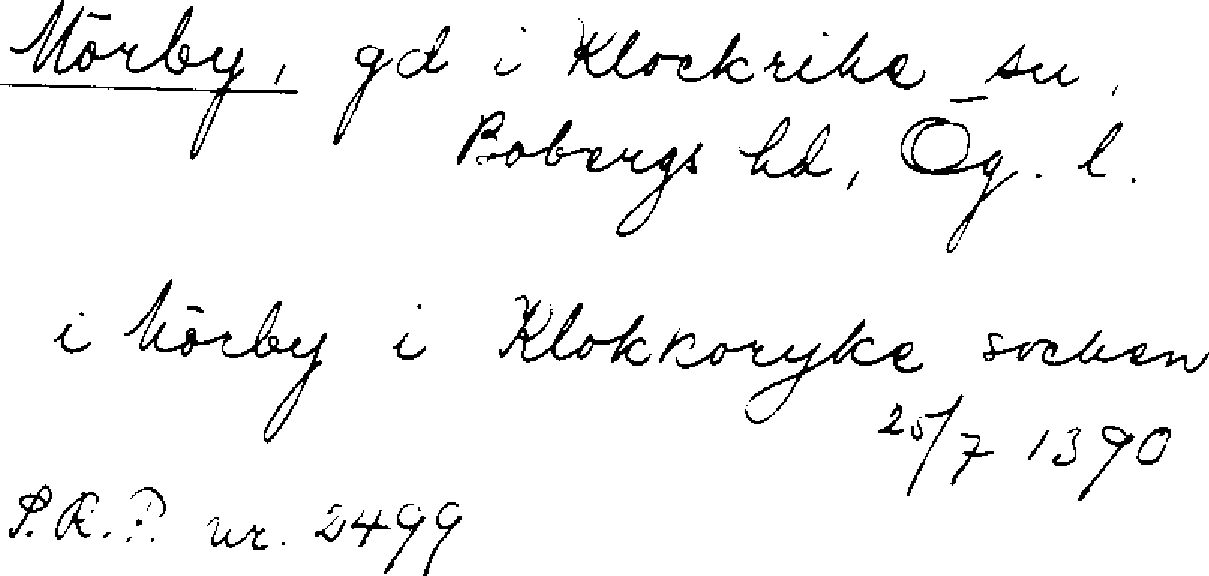 Mörby, gd i Klockrike sn,
Bobergs hd, Ög. l.
i Mörby i Klokkoryke socken
25/7 1390
S.R.P. nr. 2499